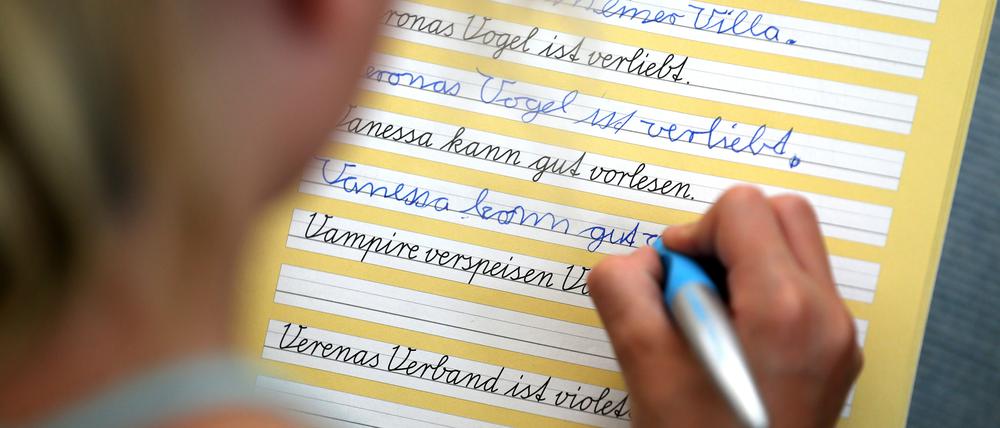 Villa.
Vogel ist verliebt.
Vogel ist verliebt.
Vanessa kann gut vorlesen.
Vanessa kann gut
Vampire verspeisen
Verenas Verband ist violet